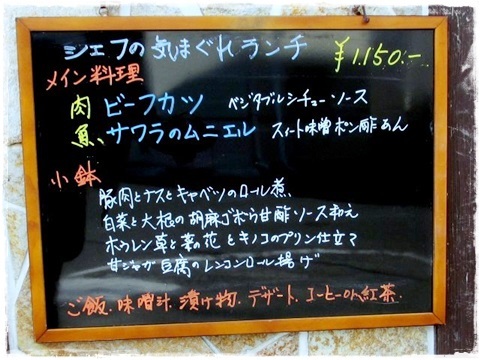 シェフの気まぐれランチ ¥1.150:-
メイン料理
肉 ビーフカツ ベジタブルシチューソース
魚 サワラのムニエル スィート味噌ポン酢あん
小鉢
豚肉とナスとキャベツのロール煮、
白菜と大根の胡麻ゴボウ甘酢ソース和え
ホウレン草と菜の花とキノコのプリン仕立て
甘ジャガ豆腐のレンコンロール揚げ
ご飯.味噌汁.漬け物.デザート.コーヒーorん紅茶